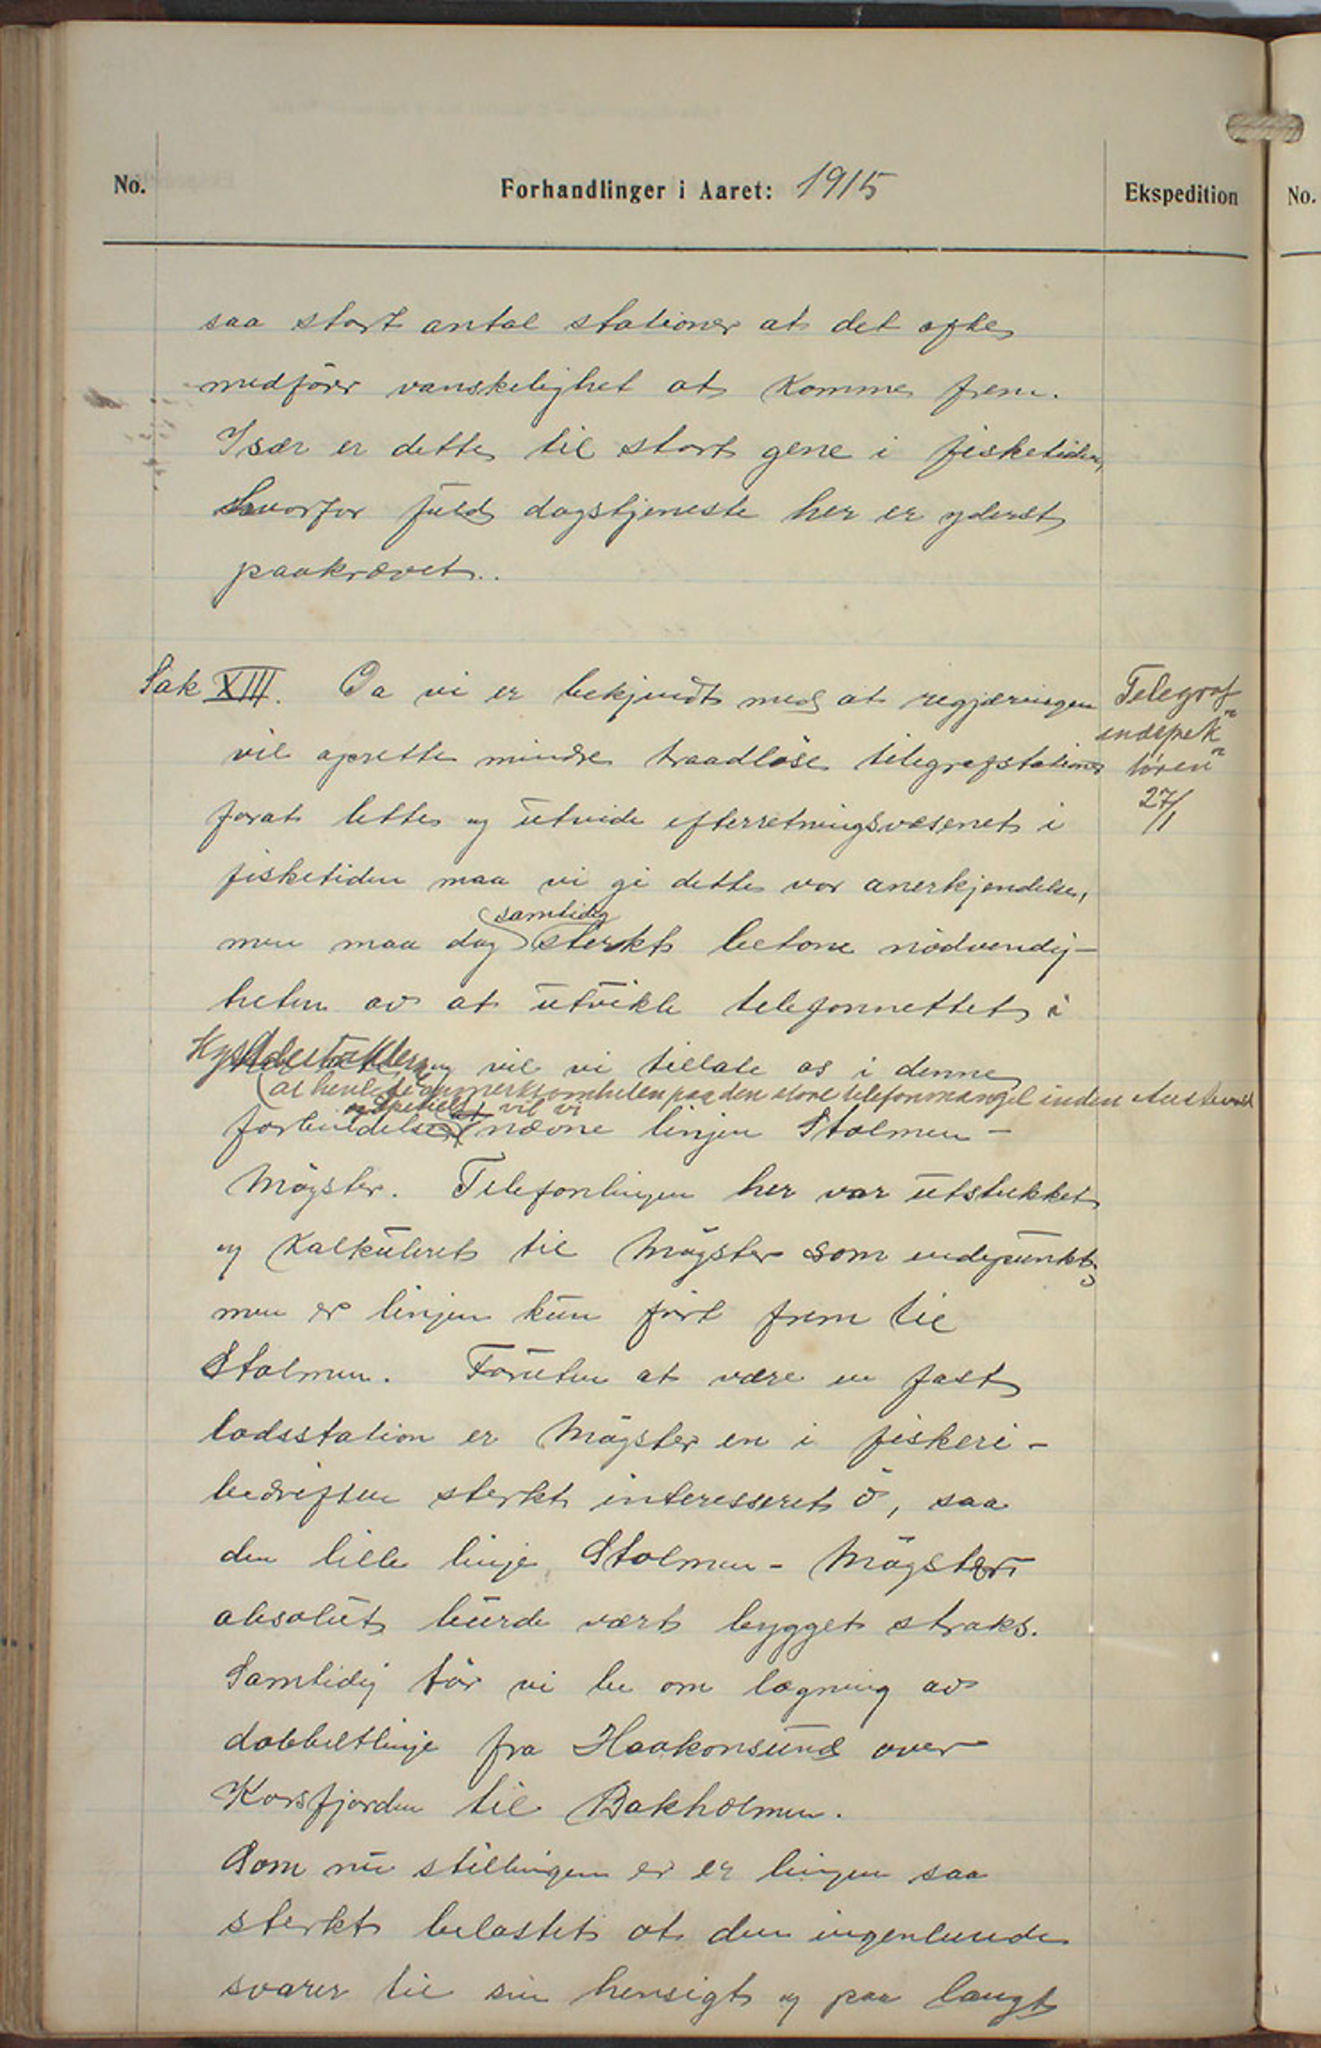 No.
Forhandlinger i Aaret: 1915
Ekspedition
No.
saa stort antal stationer at det ofte
medfører vanskelighet at komme frem.
Især er dette til stort gene i fisketiden,
hvorfor fuld dagstjeneste her er yderst
paakrævet.
Sak XIII. Da vi er bekjendt med at regjæringen
Telegraf
vil oprette mindre traadløse telegrafstationer
inspek
tøren
forat lette og utvide efterretningsvæsenet i
27/1
fisketiden maa vi gi dette vor anerkjendelse,
samtidig
men maa dog sterkt betone nødvendig-
heten av at utvikle telefonnettet i
Kystdistrikterne og vil vi tillate os i denne
at henlede opmerksomheten paa den store telefonmangel inden Austevold
og specielt vil vi
forbindelse nævne linjen Stolmen -
Møgster. Telefonlinjen her var utstukket
og kalkuleret til Møgster som endepunkt,
men er linjen kun ført frem til
Stolmen. Foruten at være en fast
lodsstation er Møgster en i fiskeri-
bedriften sterkt interesseret ö, saa
den lille linje Stolmen - Møgster
absolut burde vært bygget straks.
Samtidig tør vi be om lægning av
dobbeltlinje fra Haakonsund over
Korsfjorden til Bakholmen.
Som nu stillingen er er linjen saa
sterkt belastet at den ingenlunde
svarer til sin hensigt og paa langt